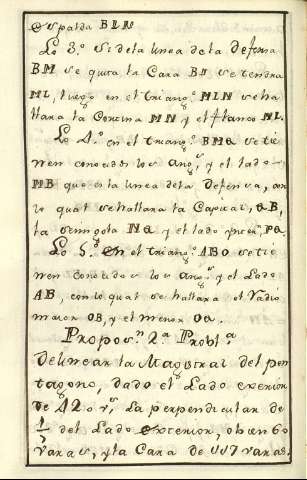 espalda BLN
Lo 3.º Si de la linea de la Defensa
BM se quita la Cara BL se tendra
ML, luego en el triang.º MLN se ha
llara la Cortina MN y el flanco NL.
Lo 4.º en el triang.º BMA se tie
nen conocidos los ang.s y el lado
MB que es la linea de la Defensa, con
lo qual se hallara la Capital, AB,
la semigola NA y el lado MA.
Lo 5.º en el triang.º ABO se tie
nen conocidos los ang.s y el Lado
AB, con lo qual se hallara el Radio
maior OB, y el menor OA.
Propos.n 2.ª Probl.ª
Delinear la Magistral del pen
tagono, dado el Lado exterior
de 420 v.s La perpendicular de
1/7 del Lado exterior, o bien 60
varas, y la Cara de 117 varas.